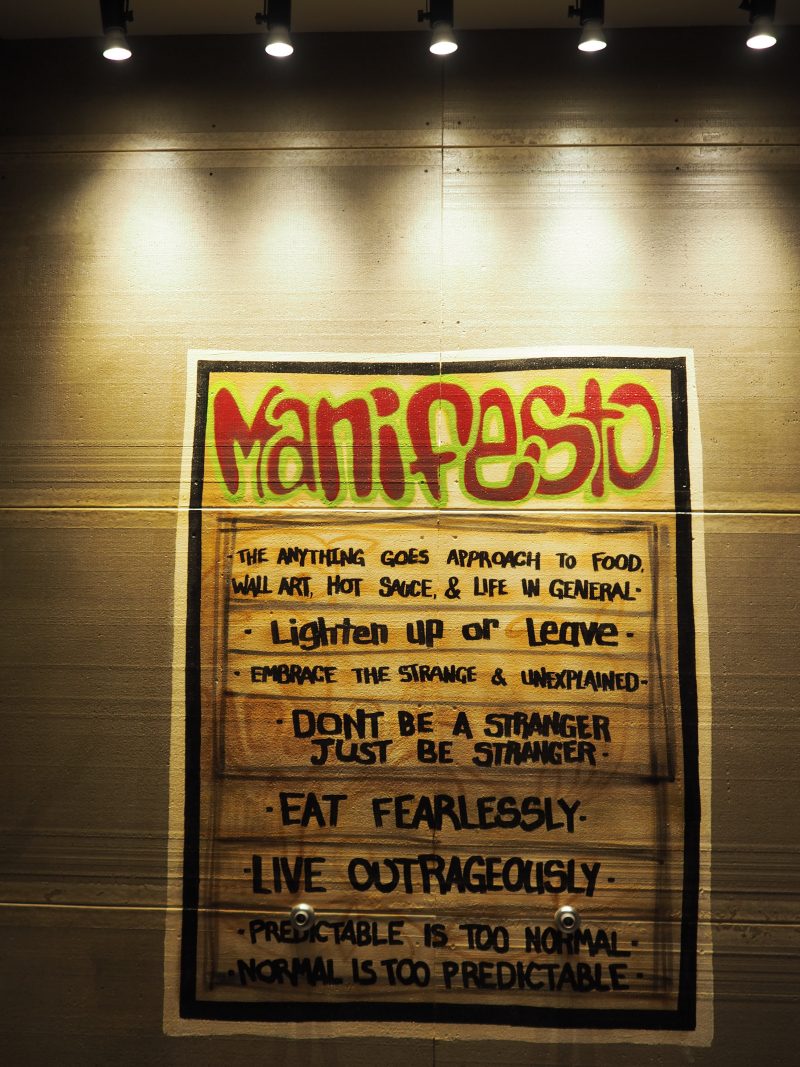 Manifesto
·THE ANYTHING GOES APPROACH TO FOOD,
WALL ART, HOT SAUCE, & LIFE IN GENERAL·
· Lighten up or Leave ·
· EMBRACE THE STRANGE & UNEXPLAINED·
· DONT BE A STRANGER
JUST BE STRANGER·
·EAT FEARLESSLY·
·LIVE OUTRAGEOUSLY·
·PREDICTABLE IS TOO NORMAL·
·NORMAL IS TOO PREDICTABLE·